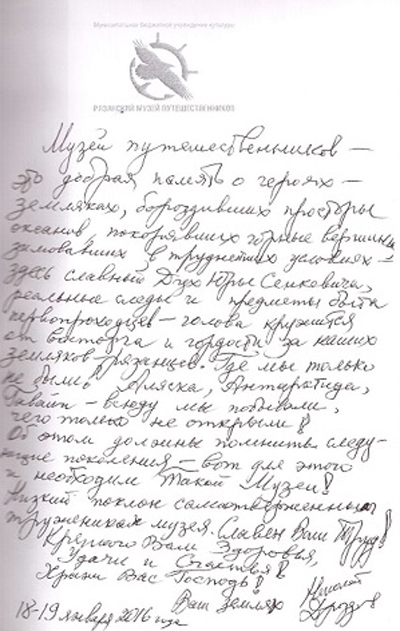 Муниципальное бюджетное учреждение культуры
РЯЗАНСКИЙ МУЗЕЙ ПУТЕШЕСТВЕННИКОВ
Музей путешественников –
это добрая память о героях –
земляках, бороздивших просторы
океанов, покорявших горные вершины
зимовавших в труднейших условиях –
здесь славный Дух Юры Сенкевича,
реальные следы и предметы быта
первопроходцев – голова кружится
от восторга и гордости за наших
земляков-рязанцев. Где мы только
не были? Аляска, Антарктида,
Гавайи – всюду мы побывали,
чего только не открыли!
Об этом должны помнить следу-
ющие поколения – вот для этого
и необходим такой Музей!
Низкий поклон самоотверженным
труженикам музея. Славен Ваш Труд!
Крепкого Вам Здоровья,
Удачи и Счастья!
Храни Вас Господь!
Ваш земляк Николай
Дроздов
18-19 января 2016 года